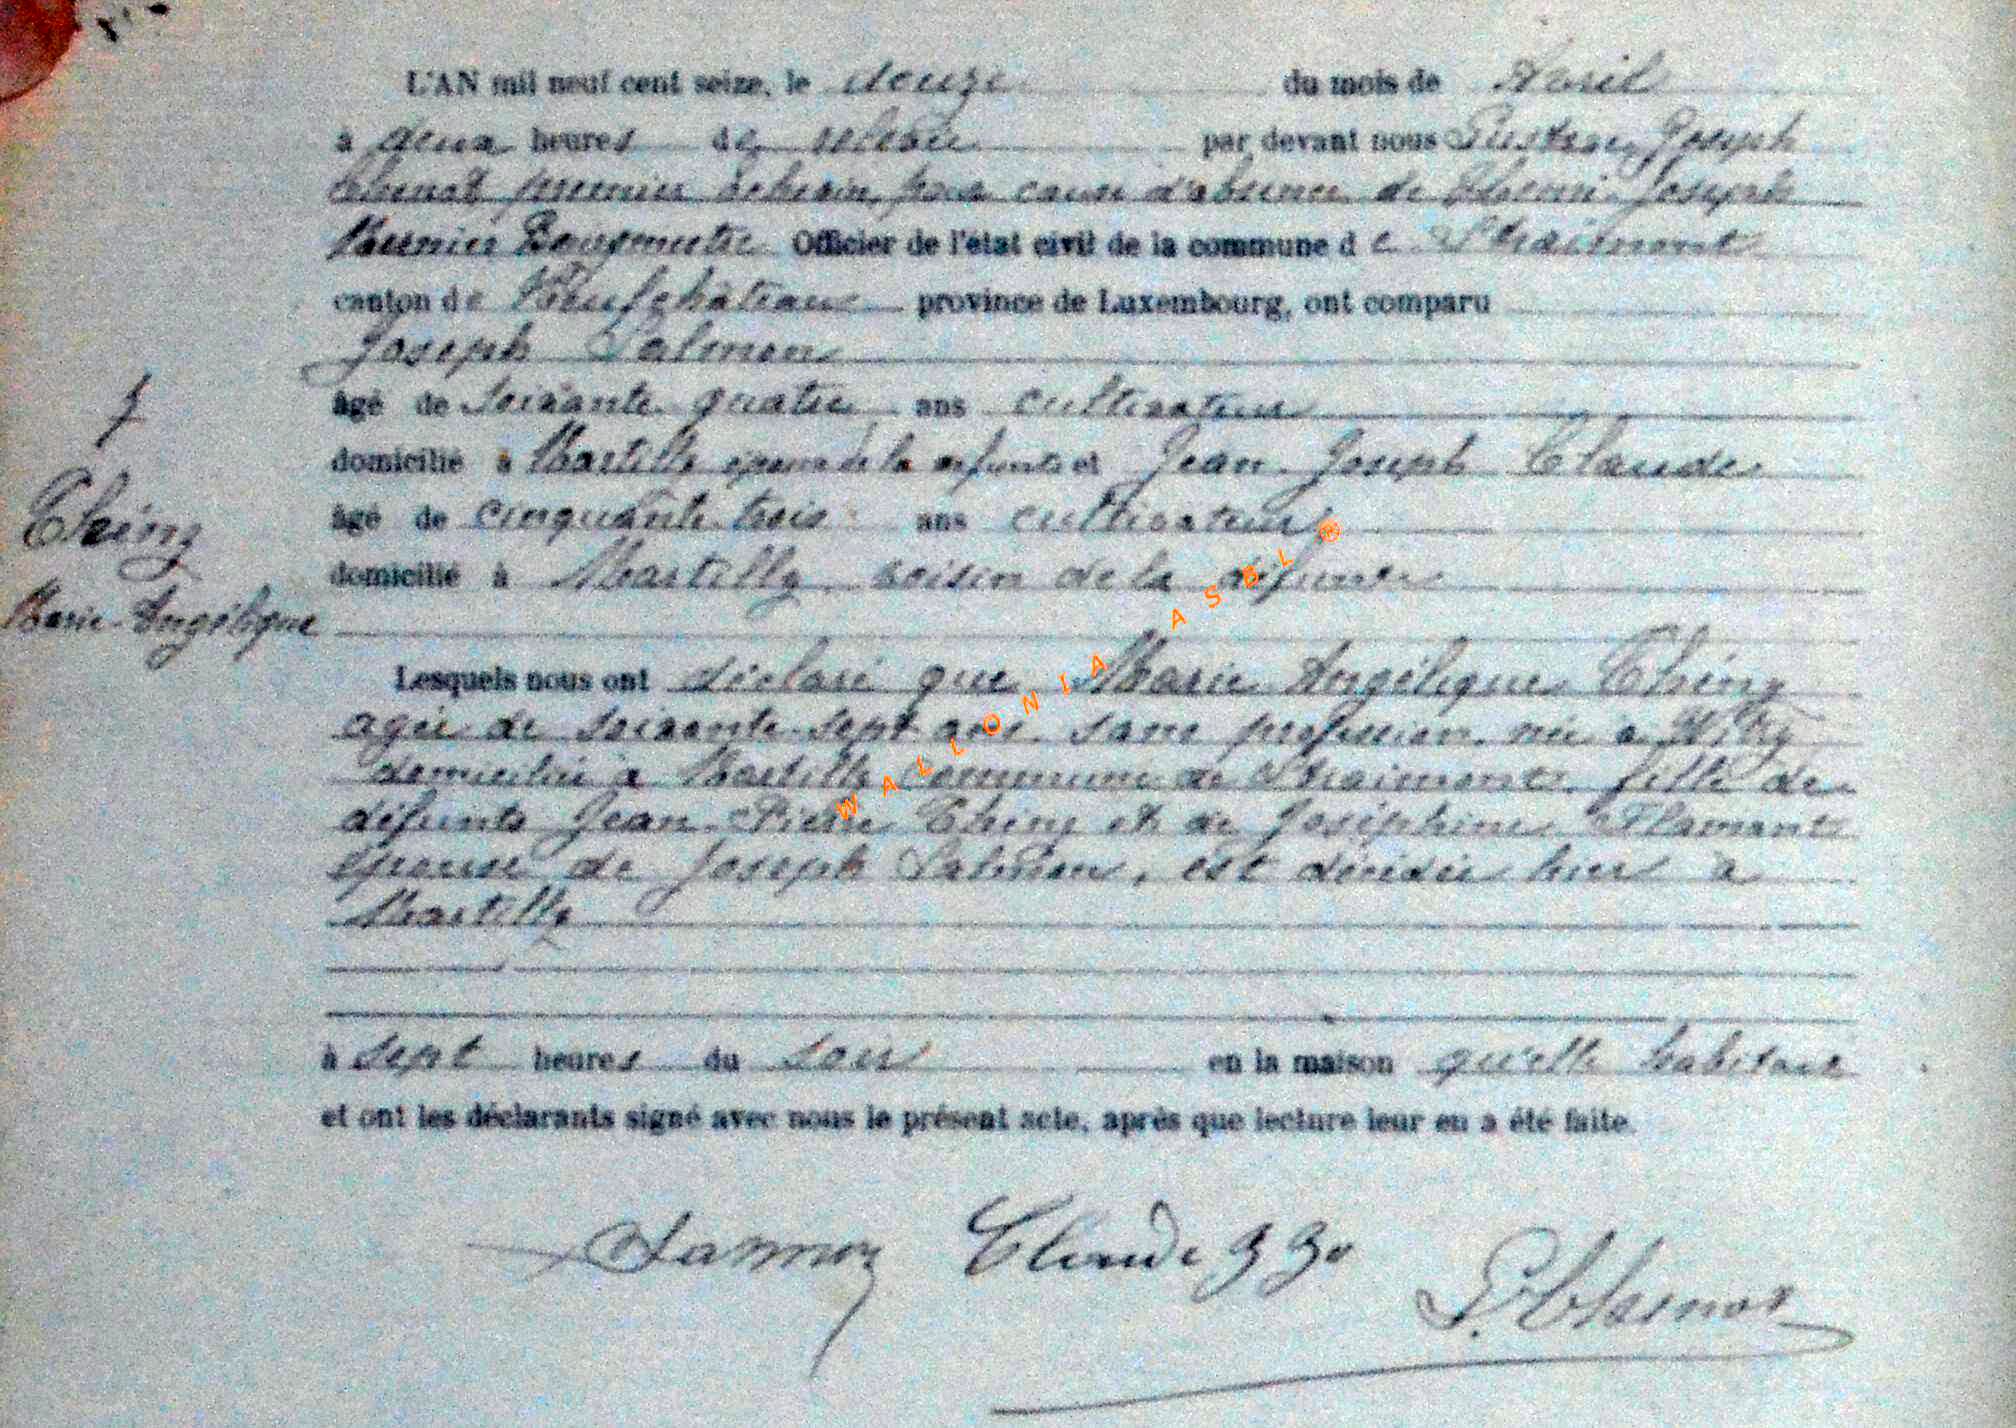 L'AN mil neuf cent seize, le douze du mois de Avril
à deux heures de relevée par devant nous Gustave Joseph
premier échevin, par cause d'absence de Henri Joseph
Bourgmestre Officier de l'état civil de la commune de Straimont
canton de Neufchâteau province de Luxembourg, ont comparu
Joseph Salmon
âgé de soixante quatre ans cultivateur
domicilié à Martilly époux de la défunte et Jean Joseph Claude
âgé de cinquante trois ans cultivateur
domicilié à Martilly voisin de la défunte
7
Théiny
Marie-Angélique
Lesquels nous ont déclaré que Marie Angélique Théiny
agée de soixante-sept ans sans profession, née à Witry
domiciliée à Martilly commune de Straimont, fille de
défunts Jean Pierre Théiny et de Joséphine Flamant
épouse de Joseph Salmon, est décédée hier à
Martilly
à sept heures du soir en la maison qu'elle habitait
et ont les déclarants signé avec nous le présent acte, après que lecture leur en a été faite.
Claude JJ
WALLONIA ASBL ®